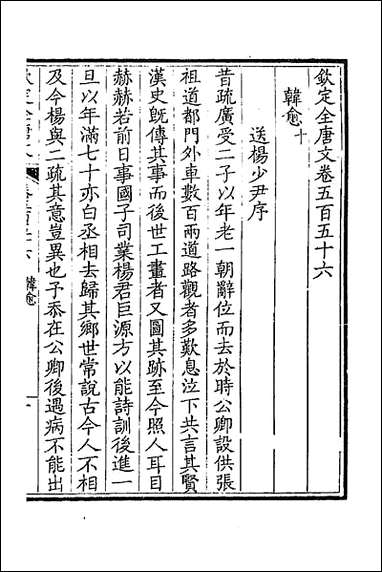 欽定全唐文卷五百五十六
韓愈十
送楊少尹序
昔疏廣受二子以年老一朝辭位而去於時公卿設供張
祖道都門外車數百兩道路觀者多歎息泣下共言其賢
漢史旣傳其事而後世工畫者又圖其跡至今照人耳目
赫赫若前日事國子司業楊君巨源方以能詩訓後進一
旦以年滿七十亦白丞相去歸其鄉世常說古今人不相
及今楊與二疏其意豈異也予忝在公卿後遇病不能出
韓愈